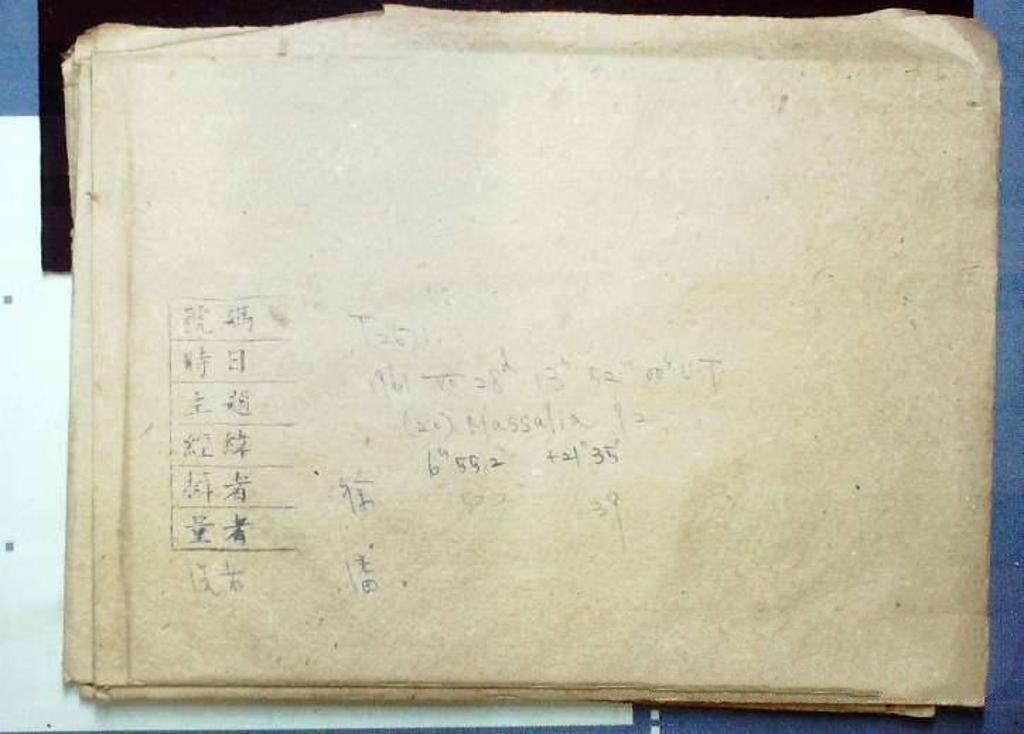 號碼 T2671
時日 1961 28ᵈ 13ʰ 52ᵐ 00ˢ U T
主題 (20) Massalia 9.2
經緯 6ʰ 55.2 +21° 35′
39
者 徐
量者
者 潘